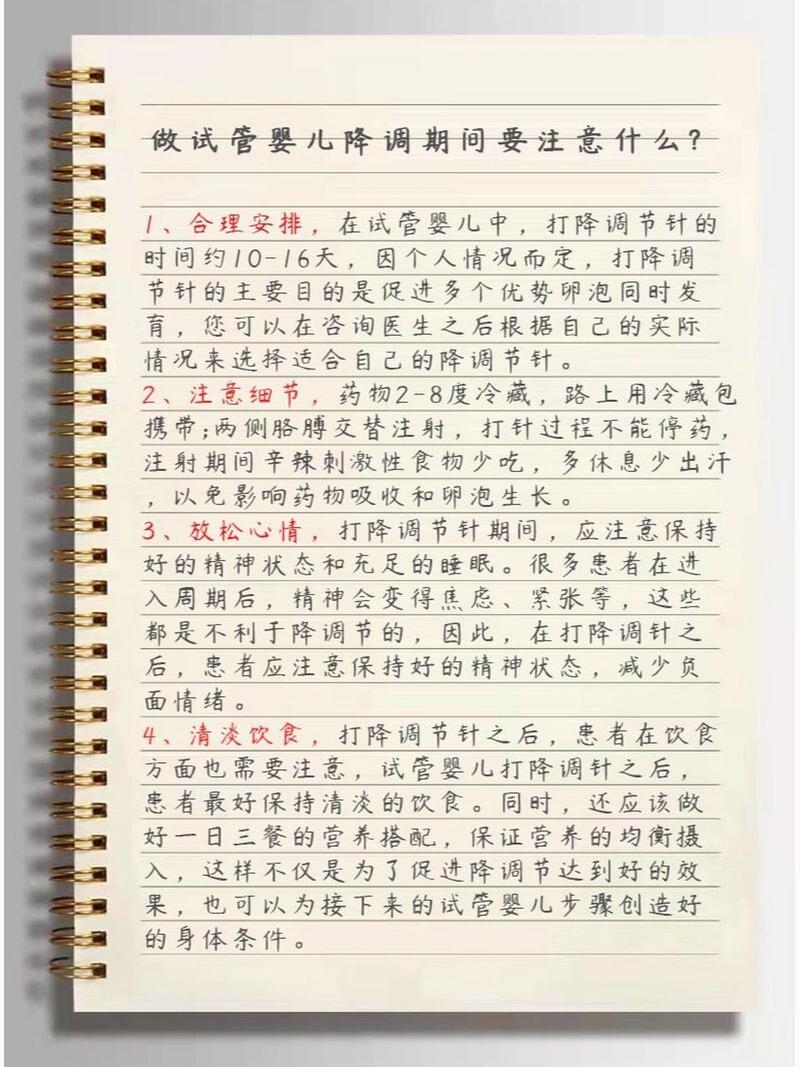 做试管婴儿降调期间要注意什么？
1、合理安排，在试管婴儿中，打降调节针的
时间约10-16天，因个人情况而定，打降调
节针的主要目的是促进多个优势卵泡同时发
育，您可以在咨询医生之后根据自己的实际
情况来选择适合自己的降调节针。
2、注意细节，药物2-8度冷藏，路上用冷藏包
携带;两侧胳膊交替注射，打针过程不能停药，
注射期间辛辣刺激性食物少吃，多休息少出汗
，以免影响药物吸收和卵泡生长。
3、放松心情，打降调节针期间，应注意保持
好的精神状态和充足的睡眠。很多患者在进
入周期后，精神会变得焦虑、紧张等，这些
都是不利于降调节的，因此，在打降调针之
后，患者应注意保持好的精神状态，减少负
面情绪。
4、清淡饮食，打降调节针之后，患者在饮食
方面也需要注意，试管婴儿打降调针之后，
患者最好保持清淡的饮食。同时，还应该做
好一日三餐的营养搭配，保证营养的均衡摄
入，这样不仅是为了促进降调节达到好的效
果，也可以为接下来的试管婴儿步骤创造好
的身体条件。